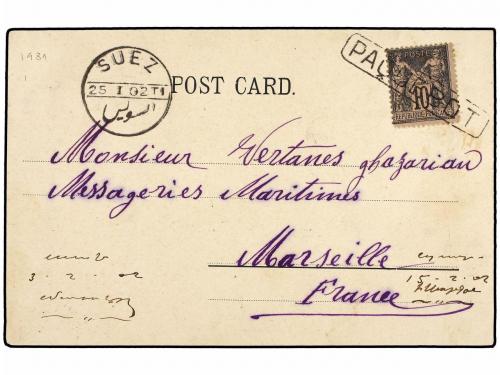 1931
SUEZ
25 I 02 T1
السويس
POST CARD.
PAQUEBOT
POSTE
10
Monsieur Vertanes ghazarian
Messageries Maritimes
Marseille
France
3. 2. 02
15. 2. 02